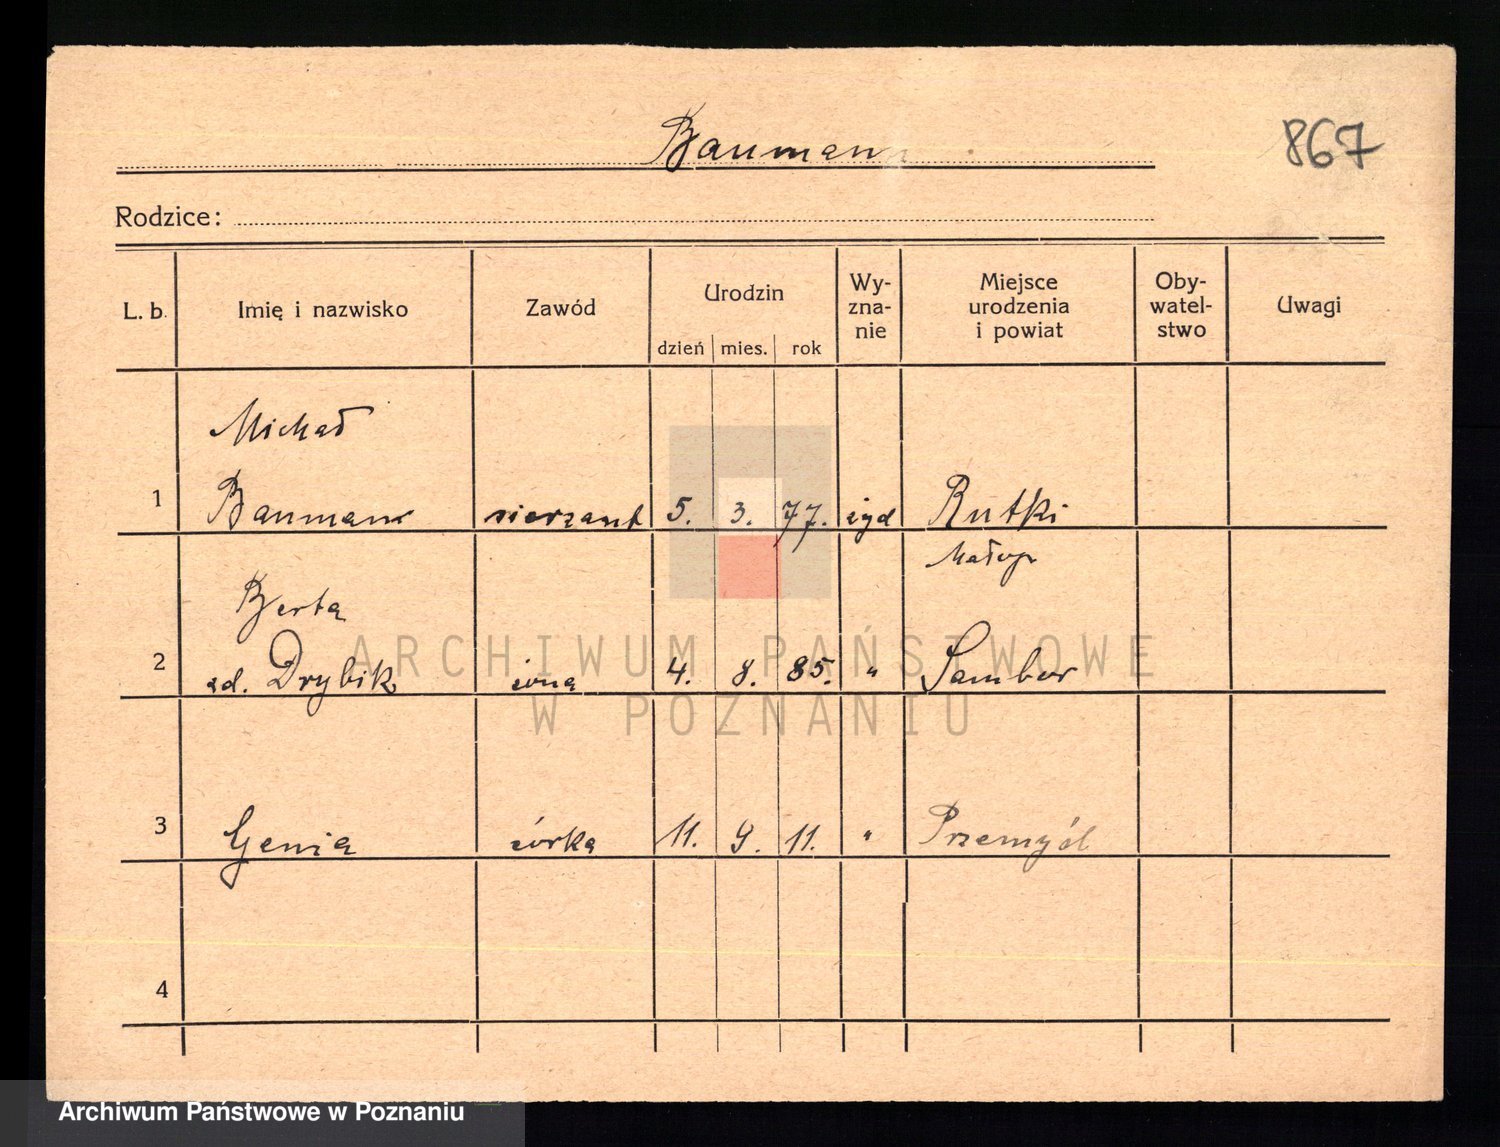 Baumann
867
Rodzice:
L. b. Imię i nazwisko Zawód Urodzin dzień mies. rok Wy-zna-nie Miejsce urodzenia i powiat Oby-watel-stwo Uwagi
Michał
1 Baumann sierżant 5. 3. 77. żyd Rutki
Małop
Berta
2 zd. Drybik żona 4. 8. 85. " Sambor
3 Genia córka 11. 9. 11. " Przemyśl
4
ARCHIWUM PAŃSTWOWE
W POZNANIU
Archiwum Państwowe w Poznaniu